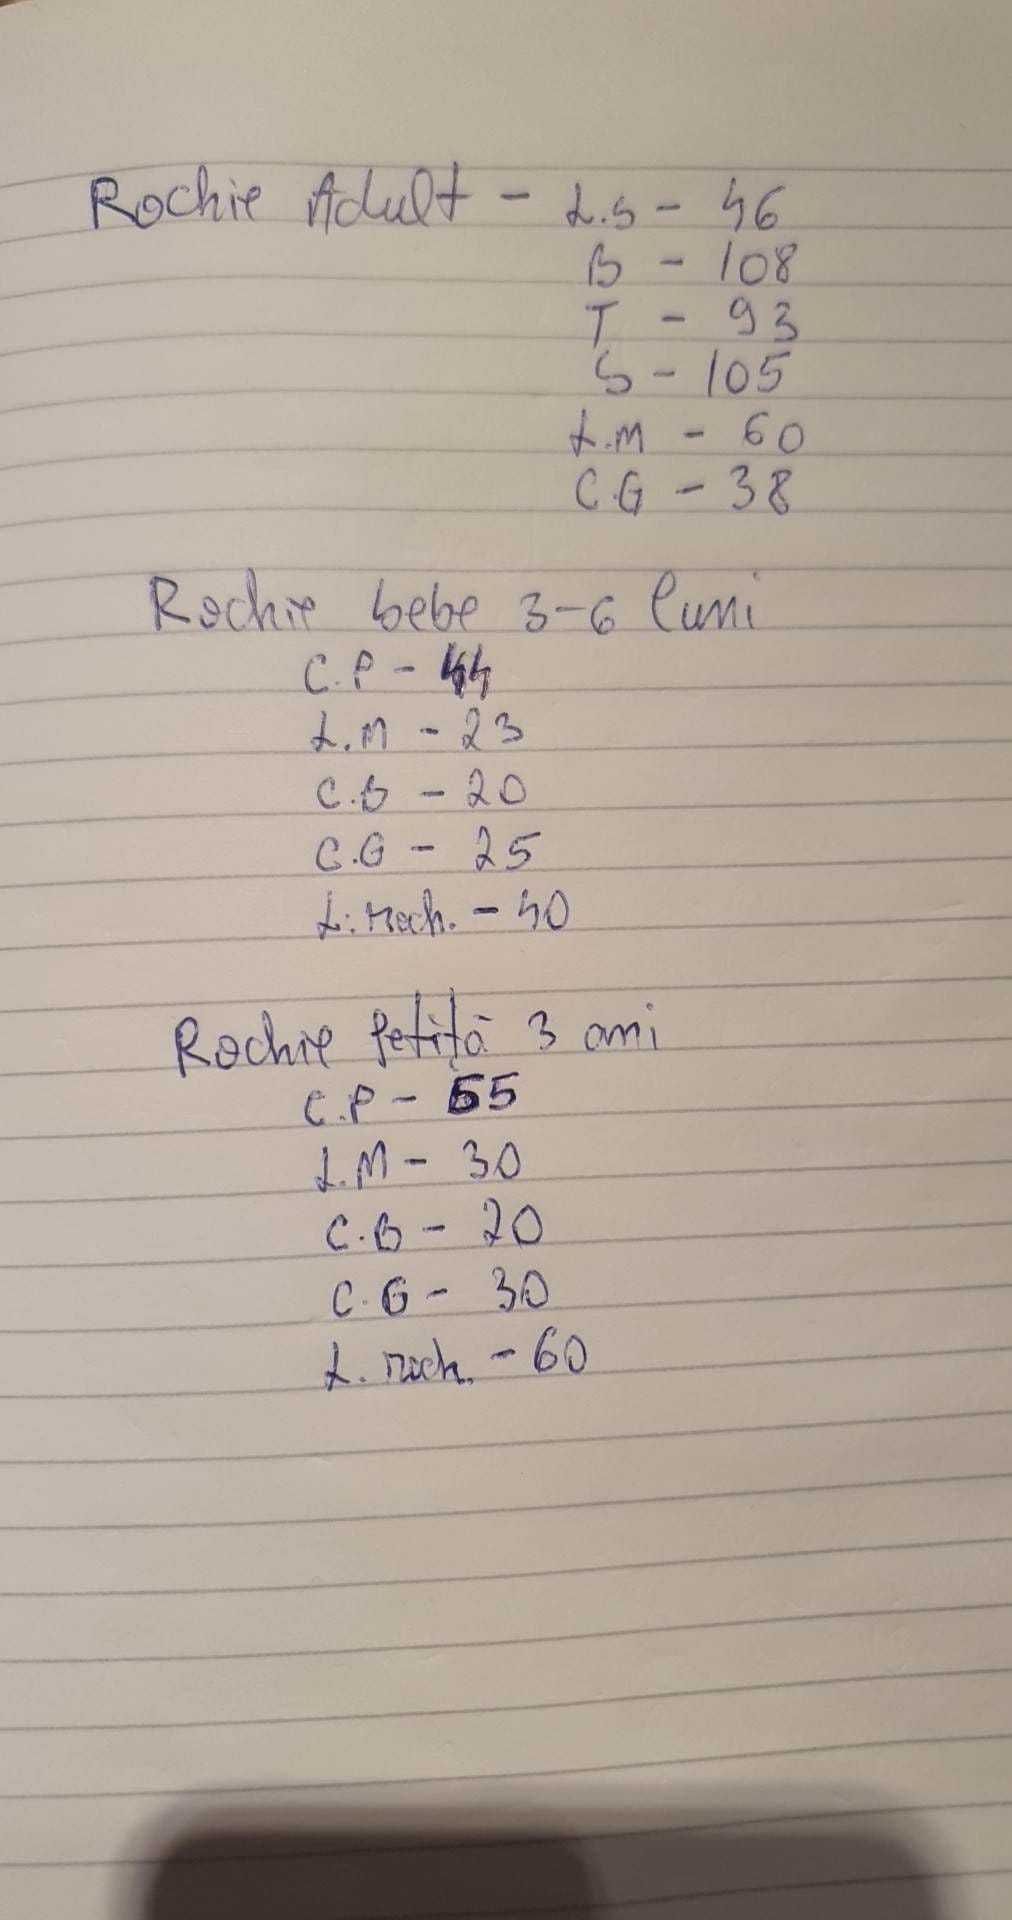 Rochie Adult - L.S - 46
B - 108
T - 93
S - 105
L.M - 60
C.G - 38
Rochie bebe 3-6 luni
C.P - 44
L.M - 23
C.B - 20
C.G - 25
L. roch. - 40
Rochie fetiță 3 ani
C.P - 55
L.M - 30
C.B - 20
C.G - 30
L. roch. - 60